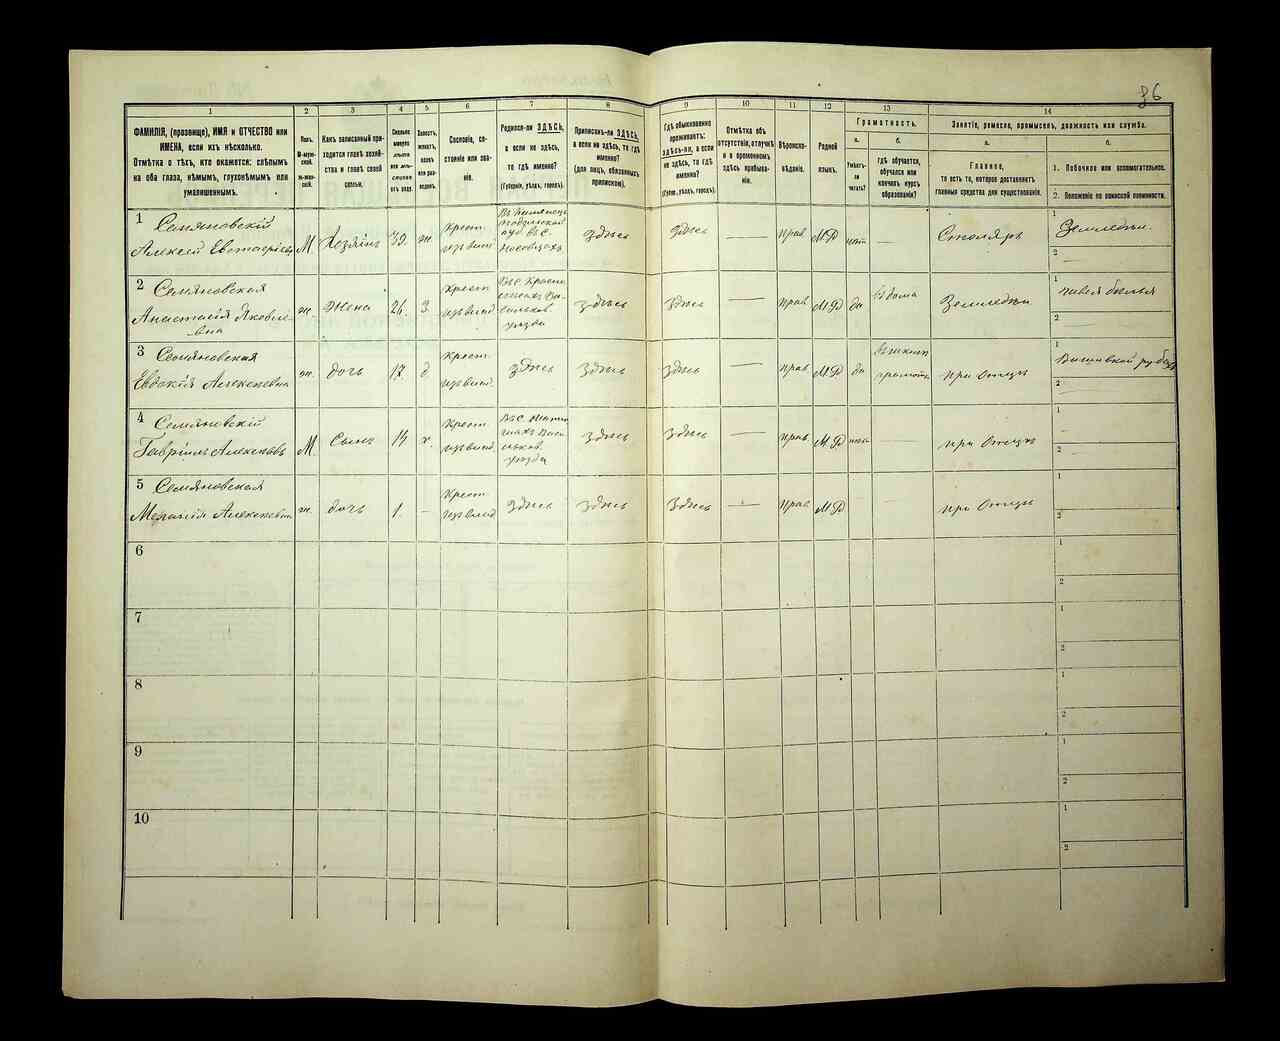 86
1
2
3
4
5
6
7
8
9
10
11
12
13
14
ФАМИЛІЯ, (прозвище), ИМЯ и ОТЧЕСТВО или
ИМЕНА, если ихъ нѣсколько.
Отмѣтка о тѣхъ, кто окажется: слѣпымъ
на оба глаза, нѣмымъ, глухонѣмымъ или
умалишеннымъ.
Полъ.
М-муж-
ской.
ж-жен-
ской.
Какъ записанный при-
ходится главѣ хозяй-
ства и главѣ своей
семьи.
Сколько
минуло
лѣтъ
или мѣ-
сяцевъ
отъ роду.
Холостъ,
женатъ,
вдовъ
или раз-
веденъ.
Сословіе, со-
стояніе или зва-
ніе.
Родился-ли ЗДѢСЬ,
а если не здѣсь,
то гдѣ именно?
(Губернія, уѣздъ, городъ).
Приписанъ-ли ЗДѢСЬ,
а если не здѣсь, то гдѣ
именно?
(для лицъ, обязанныхъ
припискою).
Гдѣ обыкновенно
проживаетъ:
ЗДѢСЬ-ли, а если
не здѣсь, то гдѣ
именно?
(Губерн., уѣздъ, городъ).
Отмѣтка объ
отсутствіи, отлучкѣ
и о временномъ
здѣсь пребыва-
ніи.
Вѣроиспо-
вѣданіе.
Родной
языкъ.
Грамотность.
а.
б.
Умѣетъ-
ли
читать?
гдѣ обучается,
обучался или
кончилъ курсъ
образованія?
Занятіе, ремесло, промыселъ, должность или служба.
а.
б.
Главное,
то есть то, которое доставляетъ
главныя средства для существованія.
1. Побочное или вспомогательное.
2. Положеніе по воинской повинности.
1 Семяновскій
Алексѣй
М. Хозяинъ 39. ж. Крест. здѣсь здѣсь — прав М.Р нѣт — Столяръ
1 Земледѣл.
2 —
2 Семяновская
Анастасія Яковле-
вна
ж. Жена 26. З. Крест. здѣсь здѣсь — прав М.Р да дома Земледѣл
1 бѣлья
2 —
3 Семяновская
Евдокія Алексѣевна
ж. дочь 17 д Крест. здѣсь здѣсь здѣсь — прав М.Р да при Отцѣ
1
2 —
4 Семяновскій
Гавріилъ Алексѣевъ
М. Сынъ х. Крест. здѣсь здѣсь — прав М.Р — при Отцѣ
1 —
2 —
5 Семяновская
Меланія Алексѣевна
ж. дочь 1. — Крест. здѣсь здѣсь здѣсь — прав М.Р при Отцѣ
1
2
6
1
2
7
1
2
8
1
2
9
1
2
10
1
2